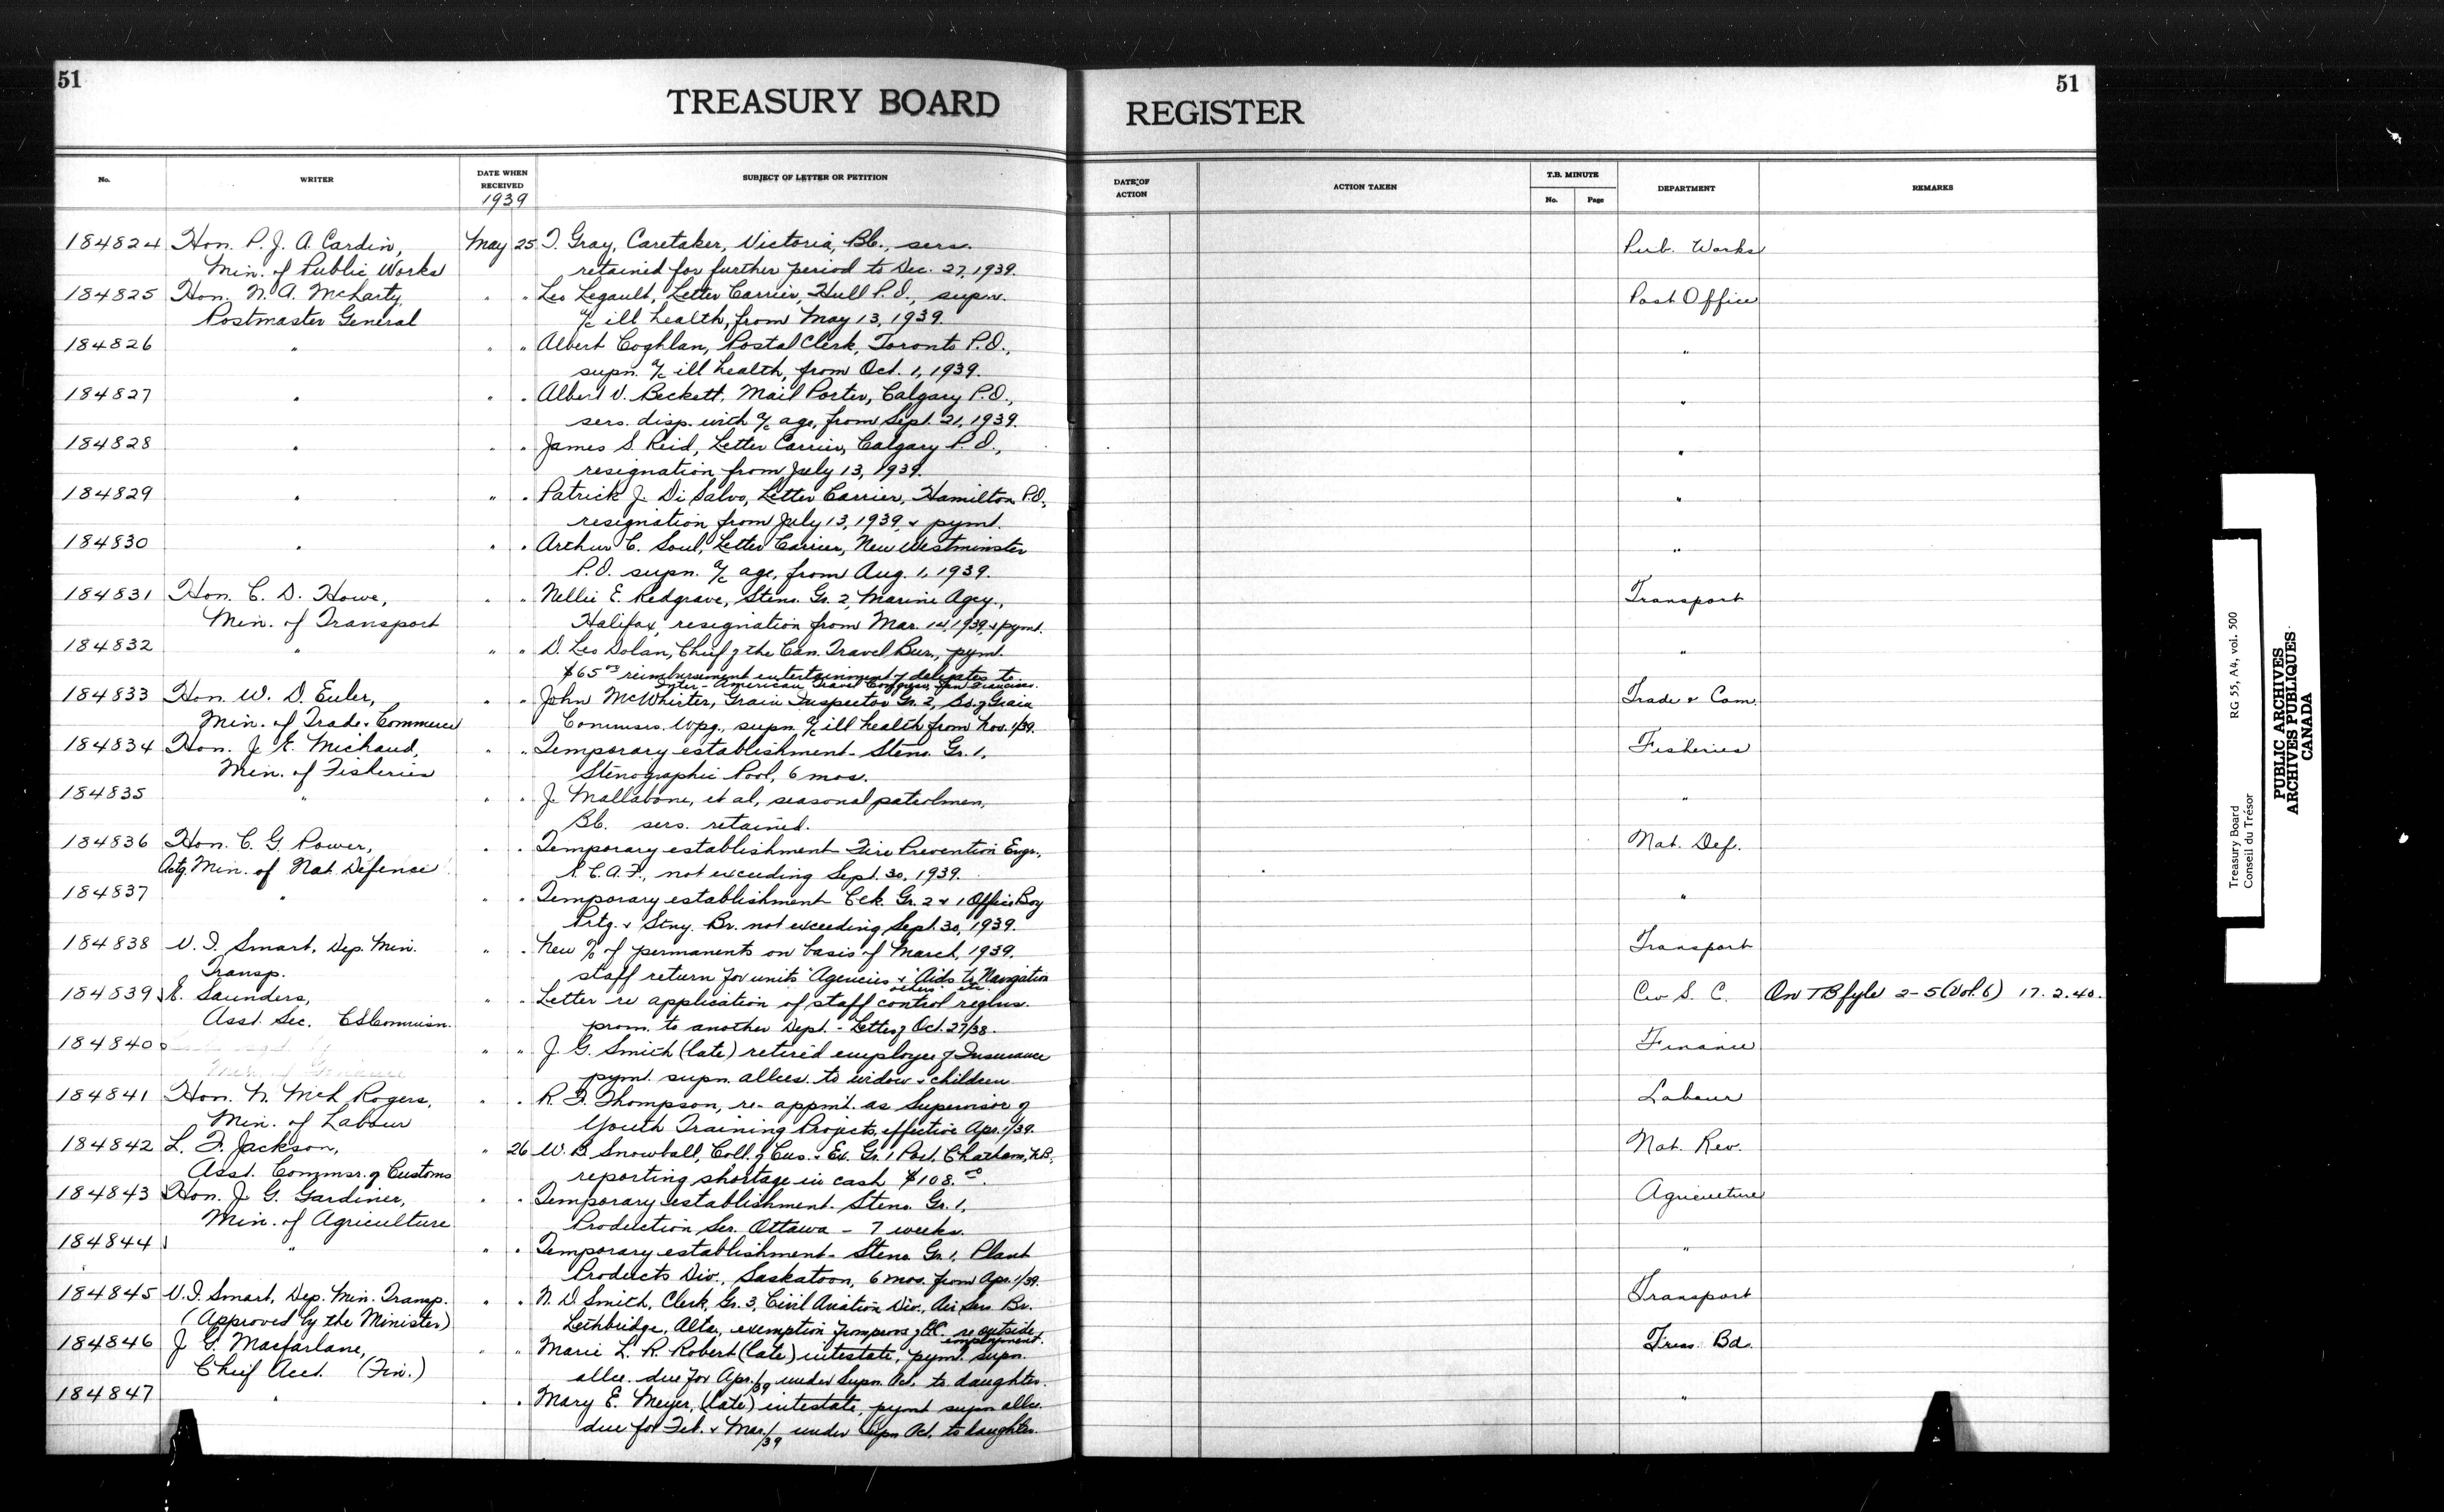 51
TREASURY BOARD
REGISTER
51
No.
WRITER
DATE WHEN RECEIVED
1939
SUBJECT OF LETTER OR PETITION
DATE OF ACTION
ACTION TAKEN
T.B. MINUTE
No.
Page
DEPARTMENT
REMARKS
184824 Hon. P. J. A. Cardin, May 25 T. Gray, Caretaker, Victoria, B.C., sers. Pub. Works
Min. of Public Works retained for further period to Dec. 27, 1939.
184825 Hon. N. A. McLarty, " " Leo Legault, Letter Carrier, Hull P.O., supn. Post Office
Postmaster General a/c ill health, from May 13, 1939.
184826 " " " Albert Coghlan, Postal Clerk, Toronto P.O., "
supn. a/c ill health, from Oct. 1, 1939.
184827 " " " Albert V. Beckett, Mail Porter, Calgary P.O., "
sers. disp. with a/c age, from Sept. 21, 1939.
184828 " " " James S. Reid, Letter Carrier, Calgary P.O., "
resignation from July 13, 1939.
184829 " " " Patrick J. Di Salvo, Letter Carrier, Hamilton P.O., "
resignation from July 13, 1939, & pymt.
184830 " " " Arthur C. Soul, Letter Carrier, New Westminster "
P.O. supn. a/c age, from Aug. 1, 1939.
184831 Hon. C. D. Howe, " " Nellie E. Redgrave, Steno. Gr. 2, Marine Agcy., Transport
Min. of Transport Halifax, resignation from Mar. 14, 1939, & pymt.
184832 " " " D. Leo Dolan, Chief of the Can. Travel Bur., pymt. "
$65 reimbursement entertainment of delegates to
Inter-American Travel Congress, San Francisco.
184833 Hon. W. D. Euler, " " John McWhirter, Grain Inspector Gr. 2, Bd. of Grain Trade & Com.
Min. of Trade & Commerce Commrs. Wpg., supn. a/c ill health from Nov. 1/39.
184834 Hon. J. E. Michaud, " " Temporary establishment - Steno. Gr. 1, Fisheries
Min. of Fisheries Stenographic Pool, 6 mos.
184835 " " " J. Mallabone, et al, seasonal patrolmen, "
B.C. sers. retained.
184836 Hon. C. G. Power, " " Temporary establishment Fire Prevention Engr., Nat. Def.
Actg. Min. of Nat. Defence R.C.A.F., not exceeding Sept. 30, 1939.
184837 " " " Temporary establishment Clk. Gr. 2 & 1 Office Boy "
Prtg. & Stny. Br. not exceeding Sept. 30, 1939.
184838 V. I. Smart, Dep. Min. " " New % of permanents on basis of March, 1939, Transport
Transp. staff return for units "Agencies" & "Aids to Navigation
others" etc.
184839 E. Saunders, " " Letter re application of staff control reglns. Civ S. C. On TB fyle 2-5 (Vol. 6) 17.2.40.
Asst. Sec. CSCommisn. prom. to another Dept. - Letter of Oct. 27/38.
184840 " " J. G. Smith (late) retired employee of Insurance Finance
pymt. supn. allces. to widow & children
184841 Hon. N. McL Rogers, " " R. F. Thompson, re-appmt. as Supervisor of Labour
Min. of Labour Youth Training Projects, effective Apr. 1/39.
184842 L. F. Jackson, " 26 W. B. Snowball, Coll. of Cus. & Ex. Gr. 1 Port, Chatham, N.B., Nat. Rev.
Asst. Commsr. of Customs reporting shortage in cash $108.
184843 Hon. J. G. Gardiner, " " Temporary establishment - Steno. Gr. 1, Agriculture
Min. of Agriculture Production Ser. Ottawa - 7 weeks.
184844 " " " Temporary establishment - Steno Gr. 1, Plant "
Products Div., Saskatoon, 6 mos. from Apr. 1/39.
184845 V. I. Smart, Dep. Min. Transp. " " N. D. Smith, Clerk, Gr. 3, Civil Aviation Div., Air Ser. Br. Transport
(Approved by the Minister) Lethbridge, Alta., exemption from provs of re outside
employment.
184846 J. G. Macfarlane, " " Marie L. R. Robert (late) intestate, pymt. supn. Treas. Bd.
Chief Acct. (Fin.) allce. due for Apr. 1/39 under Supn. Act, to daughter.
184847 " " " Mary E. Meyer, (late) intestate, pymt supn allce. "
due for Feb. & Mar. 1/39 under Supn Act, to daughter.
Treasury Board RG 55, A4, vol. 500
Conseil du Trésor
PUBLIC ARCHIVES
ARCHIVES PUBLIQUES
CANADA